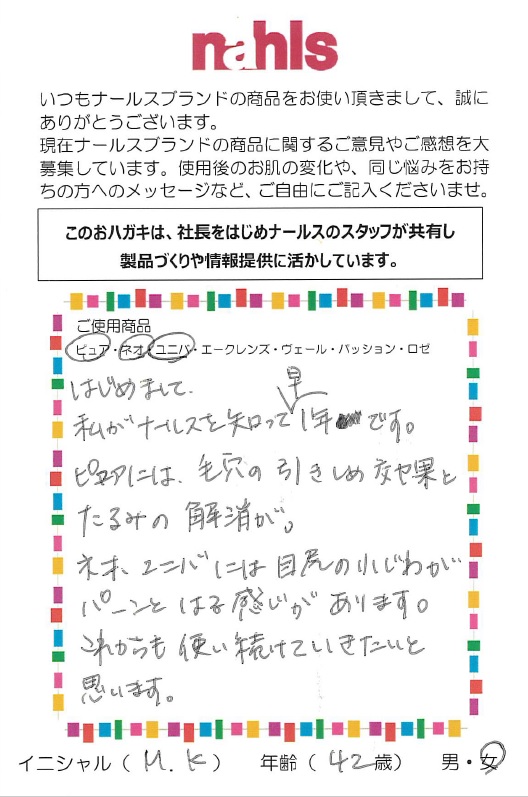 nahls
いつもナールスブランドの商品をお使い頂きまして、誠に
ありがとうございます。
現在ナールスブランドの商品に関するご意見やご感想を大
募集しています。使用後のお肌の変化や、同じ悩みをお持
ちの方へのメッセージなど、ご自由にご記入くださいませ。
このおハガキは、社長をはじめナールスのスタッフが共有し
製品づくりや情報提供に活かしています。
ご使用商品
ピュア・ネオ・ユニバ・エークレンズ・ヴェール・パッション・ロゼ
はじめまして、
私がナールスを知って早1年です。
ピュアには、毛穴の引きしめ効果と
たるみの解消が。
ネオ、ユニバには目尻の小じわが
パーンとはる感じがあります。
これからも使い続けていきたいと
思います。
イニシャル（M.K）　年齢（42歳）　男・女